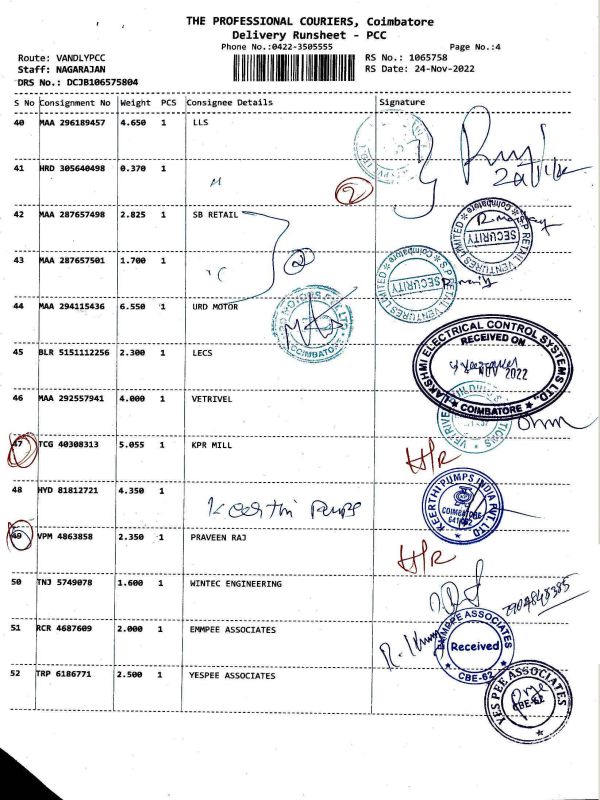 THE PROFESSIONAL COURIERS, Coimbatore
Delivery Runsheet - PCC
Phone No.:0422-3505555
Page No.:4
Route: VANDLYPCC
RS No.: 1065758
Staff: NAGARAJAN
RS Date: 24-Nov-2022
DRS No.: DCJB106575804
S No Consignment No Weight PCS Consignee Details Signature
40 MAA 296189457 4.650 1 LLS
41 HRD 305640498 0.370 1
2
42 MAA 287657498 2.825 1 SB RETAIL
S.P RETAIL VENTURES LIMITED
SECURITY
Coimbatore
2
43 MAA 287657501 1.700 1
S.P RETAIL VENTURES LIMITED
SECURITY
Coimbatore
44 MAA 294115436 6.550 1 URD MOTOR
COIMBATORE
45 BLR 5151112256 2.300 1 LECS
LAKSHMI ELECTRICAL CONTROL SYSTEMS LTD.,
RECEIVED ON
NOV 2022
COIMBATORE
46 MAA 292557941 4.000 1 VETRIVEL
47 TCG 40308313 5.055 1 KPR MILL
H/R
48 HYD 81812721 4.350 1
Keerthi Pumps
KEERTHI PUMPS INDIA PVT LTD
COIMBATORE
49 VPM 4863858 2.350 1 PRAVEEN RAJ
H/R
50 TNJ 5749078 1.600 1 WINTEC ENGINEERING
51 RCR 4687609 2.000 1 EMMPEE ASSOCIATES
EMMPEE ASSOCIATES
Received
CBE-62
52 TRP 6186771 2.500 1 YESPEE ASSOCIATES
YES PEE ASSOCIATES
CBE-62